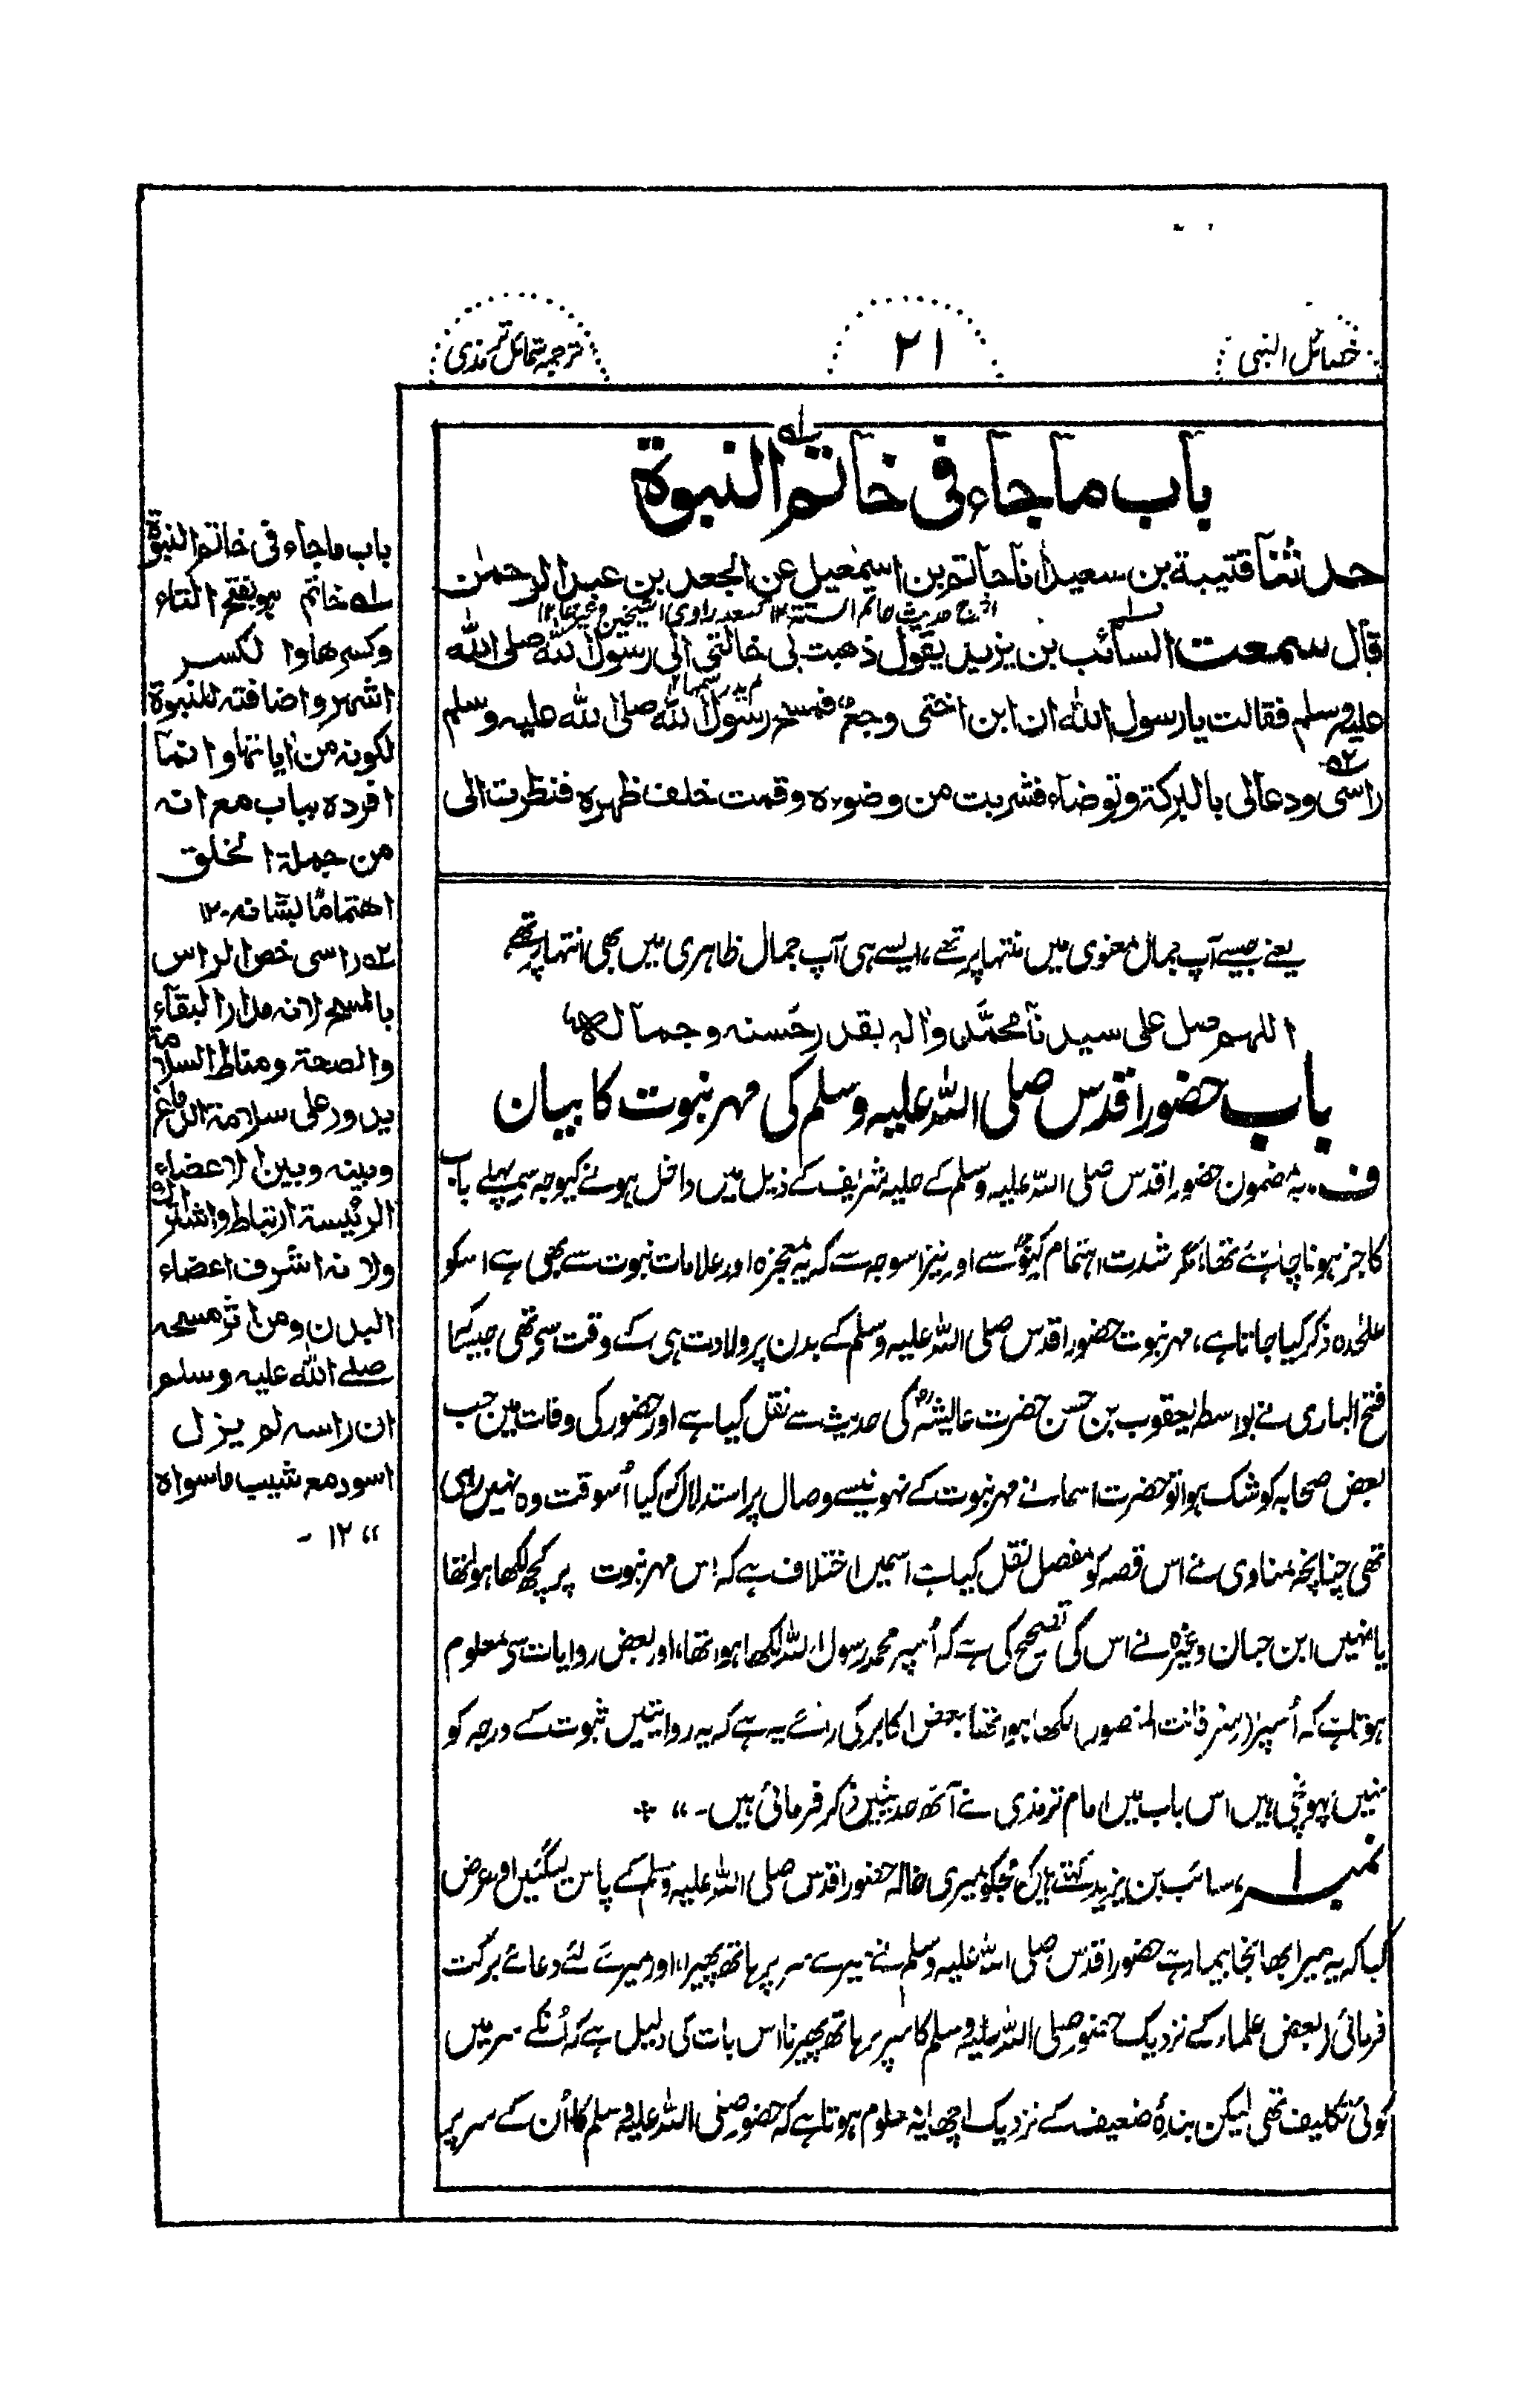 خصائل النبی
۲۱
ترجمہ شمائل ترمذی
باب ماجاء فی خاتم النبوة
حدثنا قتیبة بن سعید انا حاتم بن اسمعیل عن الجعد بن عبد الرحمن
قال سمعت السائب بن یزید یقول ذهبت بی خالتی الی رسول الله صلی الله
علیه وسلم فقالت یا رسول الله ان ابن اختی وجع فمسح رسول الله صلی الله علیه وسلم
راسی ودعا لی بالبرکة وتوضاء فشربت من وضوءہ وقمت خلف ظهرہ فنظرت الی
یعنے جیسے آپ جمال معنوی میں منتہا پر تھے، ایسے ہی آپ جمال ظاہری میں بھی انتہا پر تھے
اللهم صل علی سیدنا محمد واٰلہ بقدر حسنہ وجمالہ
باب حضور اقدس صلی اللہ علیہ وسلم کی مہر نبوت کا بیان
ف۔ یہ مضمون حضور اقدس صلی اللہ علیہ وسلم کے حلیہ شریف کے ذیل میں داخل ہونے کیوجہ سے پہلے باب
کا جز ہونا چاہئے تھا، مگر شدت اہتمام کیوجہ سے اور نیز اسوجہ سے کہ یہ معجزہ اور علامات نبوت سے بھی ہے اسکو
علٰحدہ ذکر کیا جاتا ہے، مہر نبوت حضور اقدس صلی اللہ علیہ وسلم کے بدن پر ولادت ہی کے وقت سے تھی جیسا کہ
فتح الباری نے بواسطہ یعقوب بن حسن حضرت عائشہؓ کی حدیث سے نقل کیا ہے اور حضور کی وفات میں جب
بعض صحابہ کو شک ہوا تو حضرت اسماء نے مہر نبوت کے نہونیسے وصال پر استدلال کیا اُسوقت وہ نہیں رہی
تھی چنانچہ مناوی نے اس قصہ کو مفصل نقل کیا ہے اسمیں اختلاف ہے کہ اس مہر نبوت پر کچھ لکھا ہوا تھا
یا نہیں ابن حبان وغیرہ نے اس کی تصحیح کی ہے کہ اُسپر محمد رسول اللہ لکھا ہوا تھا، اور بعض روایات سے معلوم
ہوتا ہے کہ اُسپر (سر فانت المنصور) لکھا ہوا تھا بعض اکابر کی رائے یہ ہے کہ یہ روایتیں ثبوت کے درجہ کو
نہیں پہونچی ہیں اس باب میں امام ترمذی نے آٹھ حدیثیں ذکر فرمائی ہیں۔ ‘‘
نمبر ۱، سائب بن یزید کہتے ہیں کہ مجکو میری خالہ حضور اقدس صلی اللہ علیہ وسلم کے پاس لیگئیں اور عرض
کیا کہ یہ میرا بھانجا بیمار ہے حضور اقدس صلی اللہ علیہ وسلم نے میرے سر پر ہاتھ پھیرا، اور میرے لئے دعائے برکت
فرمائی (بعض علماء کے نزدیک حضور صلی اللہ علیہ وسلم کا سر پر ہاتھ پھیرنا اس بات کی دلیل ہے کہ اُنکے سر میں
کوئی تکلیف تھی لیکن بندۂ ضعیف کے نزدیک اچھا یہ معلوم ہوتا ہے کہ حضور صلی اللہ علیہ وسلم کا اُن کے سر پر
باب ماجاء فی خاتم النبوة
۱ه خاتم ہو بفتح التاء
وکسرها والکسر
اشهر واضافتہ للنبوة
لکونہ من اٰیاتها وانما
افردہ بباب مع انہ
من جملة الخلق
اهتمامًا لبشانہ۔۱۲
۲ه راسی خص الراس
بالمسح لانہ مدار البقاء
والصحة ومناط السلامة
یدور علی سلامة الدماغ
وبینہ وبین الاعضاء
الرئیسة ارتباط واشتراک
ولانہ اشرف اعضاء
البدن ومن اثر مسحہ
صلے اللہ علیہ وسلم
ان راسہ لم یزل
اسود مع شیب ما سواہ
‘‘ ۱۲ -